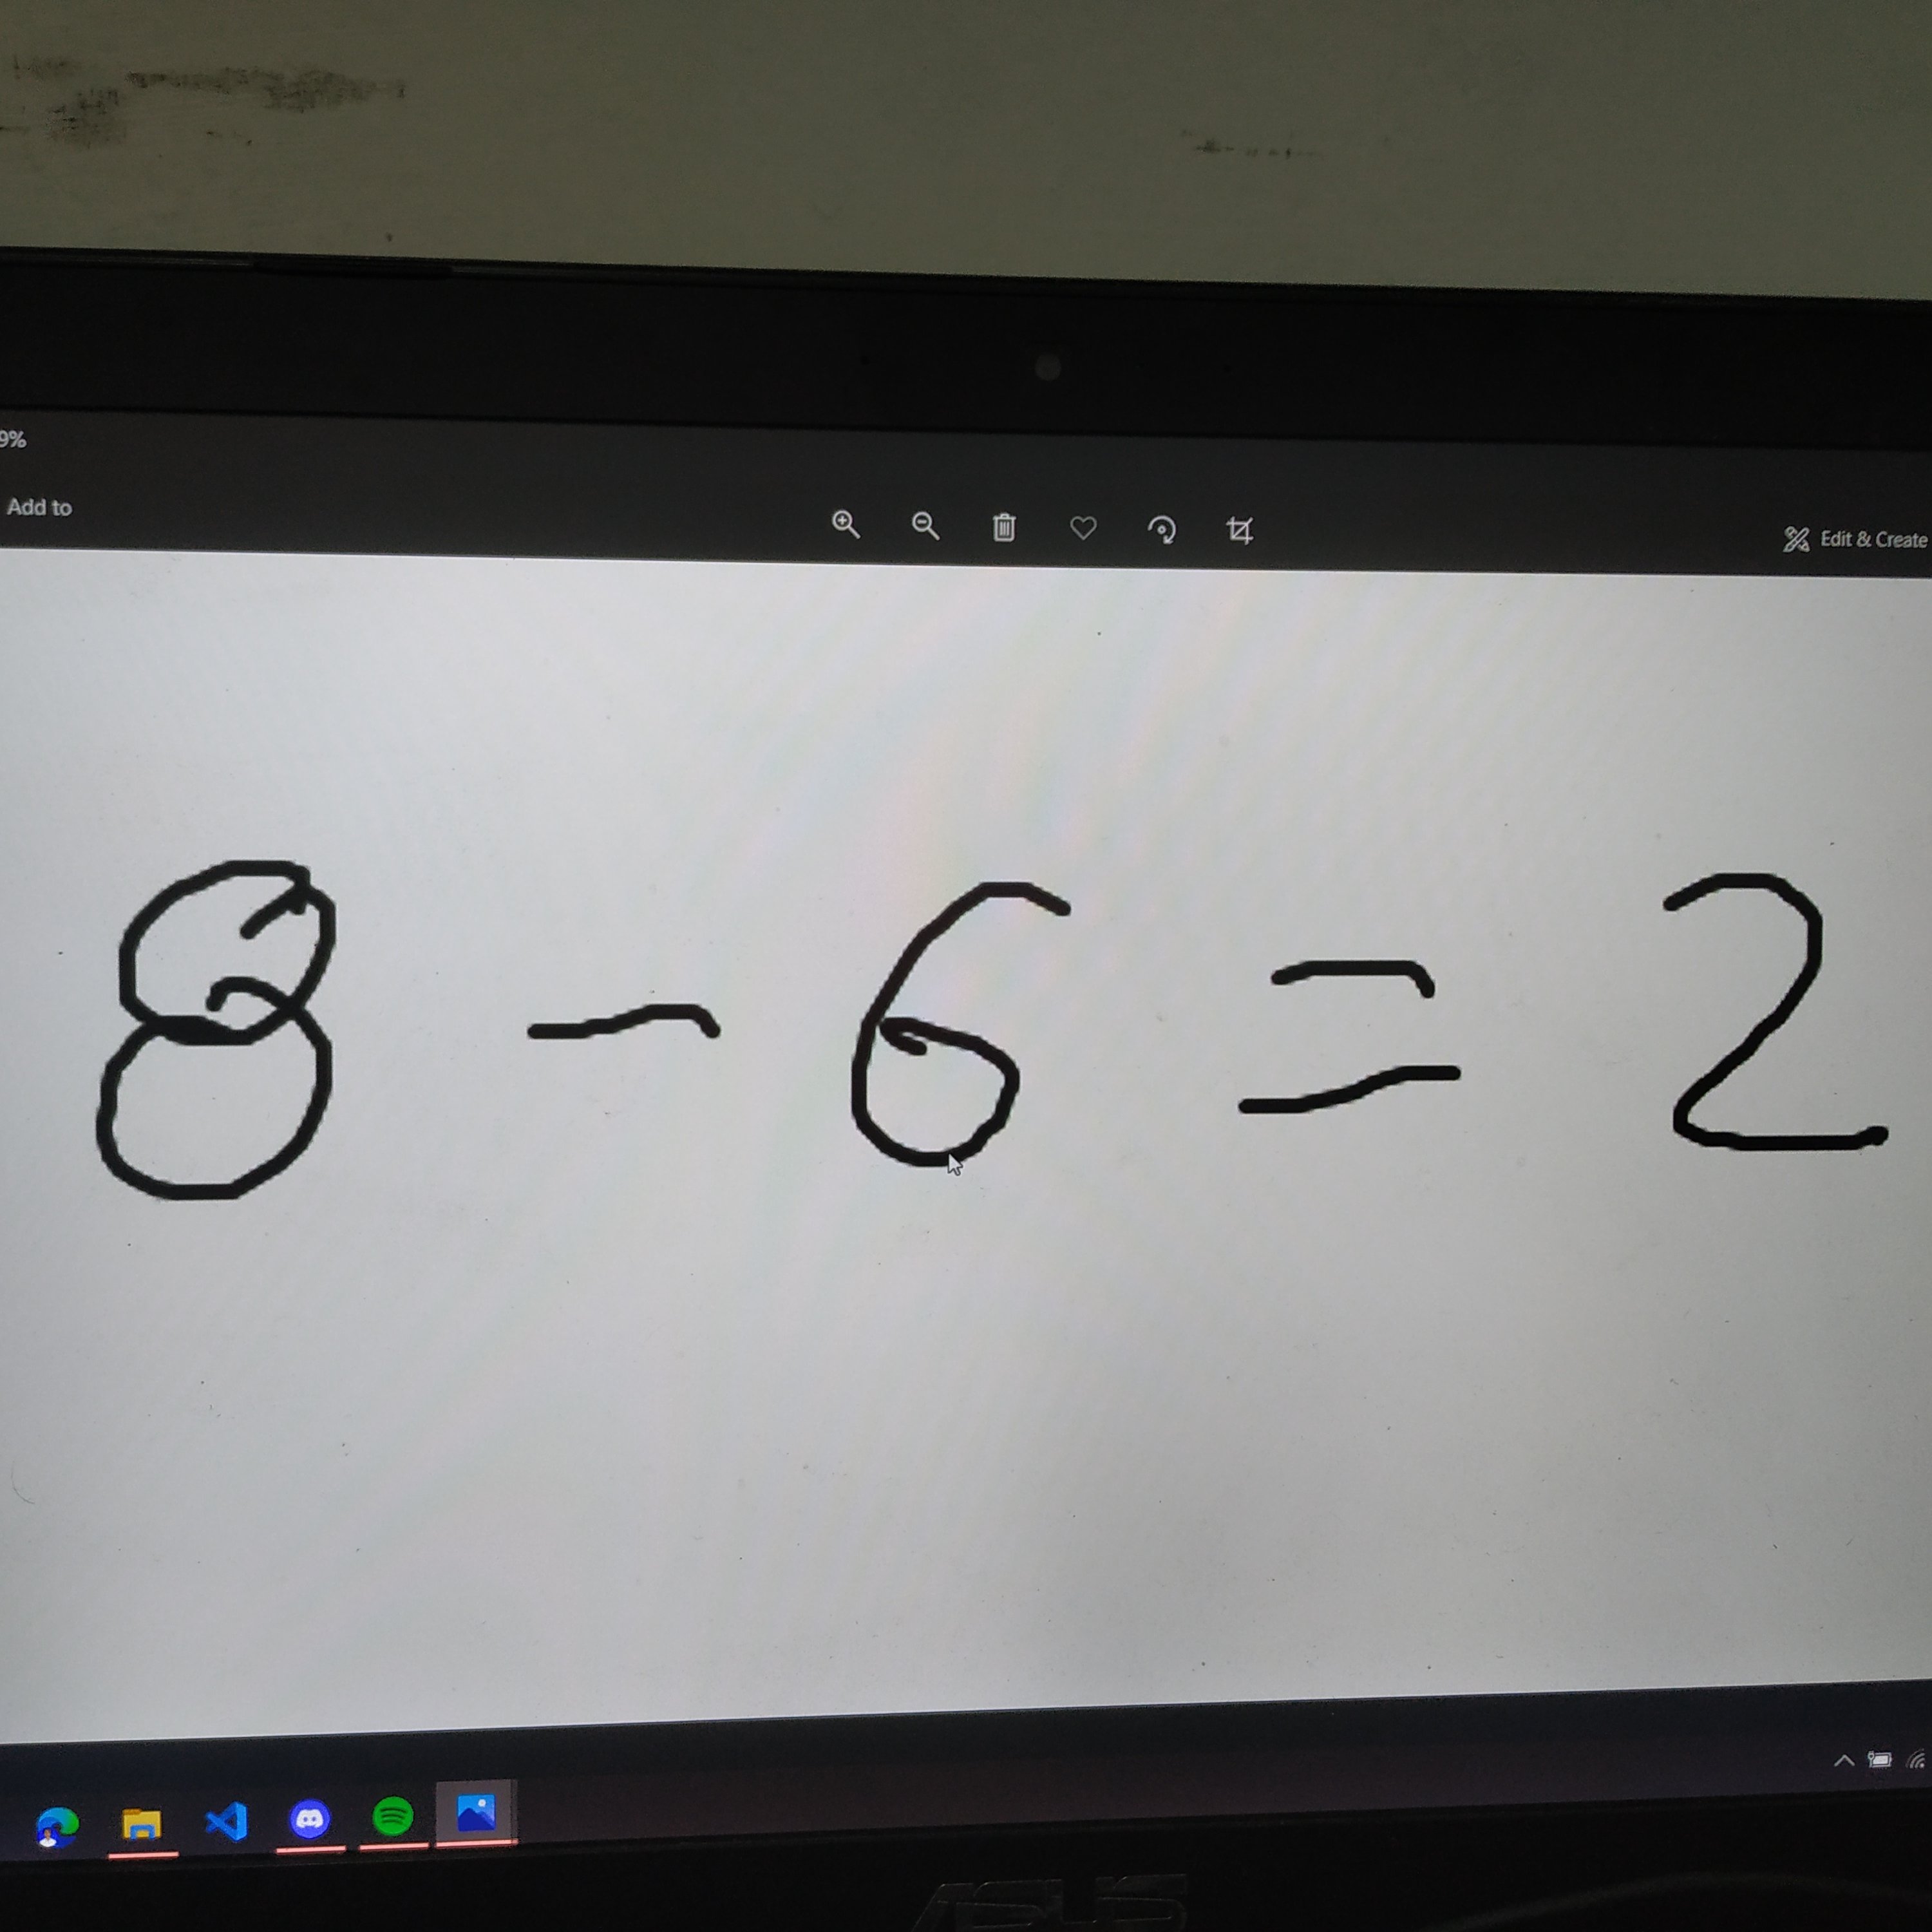 9%
Add to
Edit & Create
8 - 6 = 2
ASUS